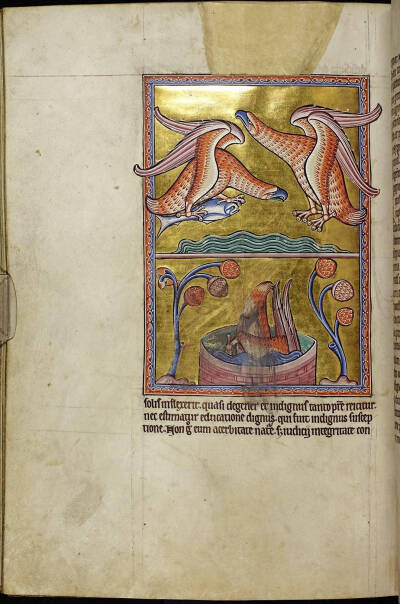 solis inflexerit. quasi degener et indignus tanto p̄re reicitur.
nec estimatur educatione dignus. qui fuit indignus suscep
tione. Non g̊ eum acerbitate nat̄e. s; iudicij integritate con